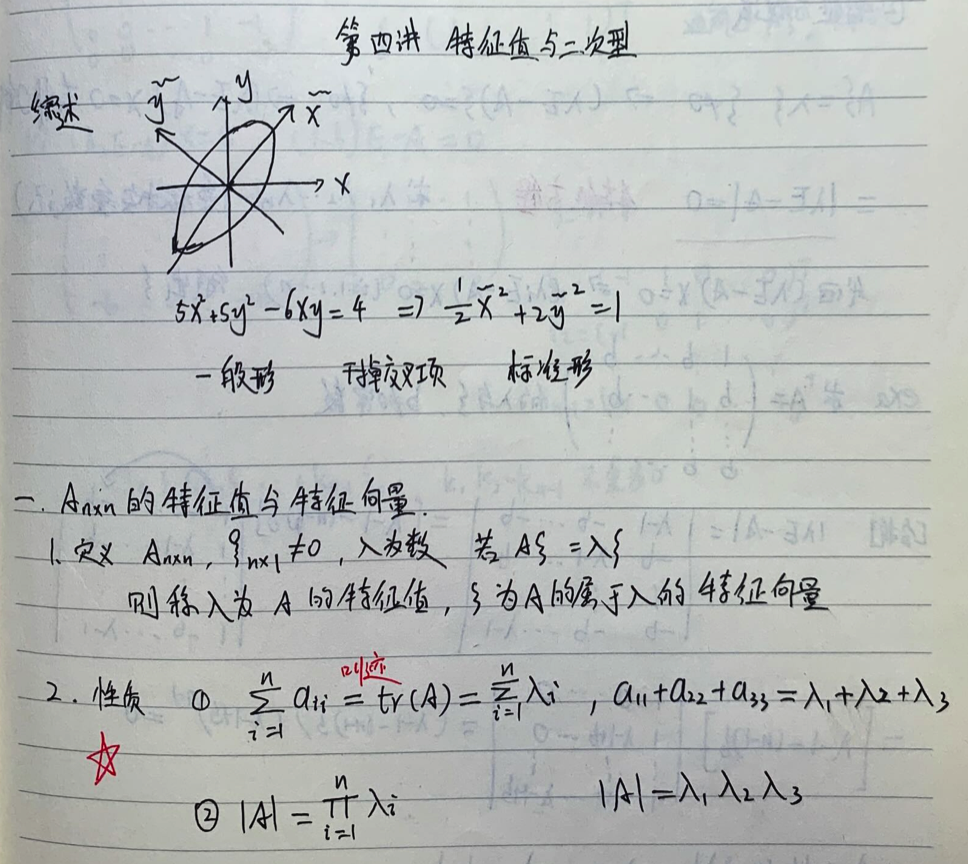 第四讲 特征值与二次型
综述
ỹ y x̃
x
5x²+5y²-6xy=4 => 1/2 x̃²+2ỹ²=1
一般形 干掉交叉项 标准形
一. Aₙₓₙ的特征值与特征向量.
1. 定义 Aₙₓₙ, ξₙₓ₁≠0, λ为数 若 Aξ=λξ
则称λ为 A 的特征值, ξ为A的属于λ的特征向量
2. 性质 ① ∑ᵢ₌₁ⁿ aᵢᵢ = tr(A) = ∑ᵢ₌₁ⁿ λᵢ , a₁₁+a₂₂+a₃₃=λ₁+λ₂+λ₃
② |A| = ∏ᵢ₌₁ⁿ λᵢ |A|=λ₁λ₂λ₃